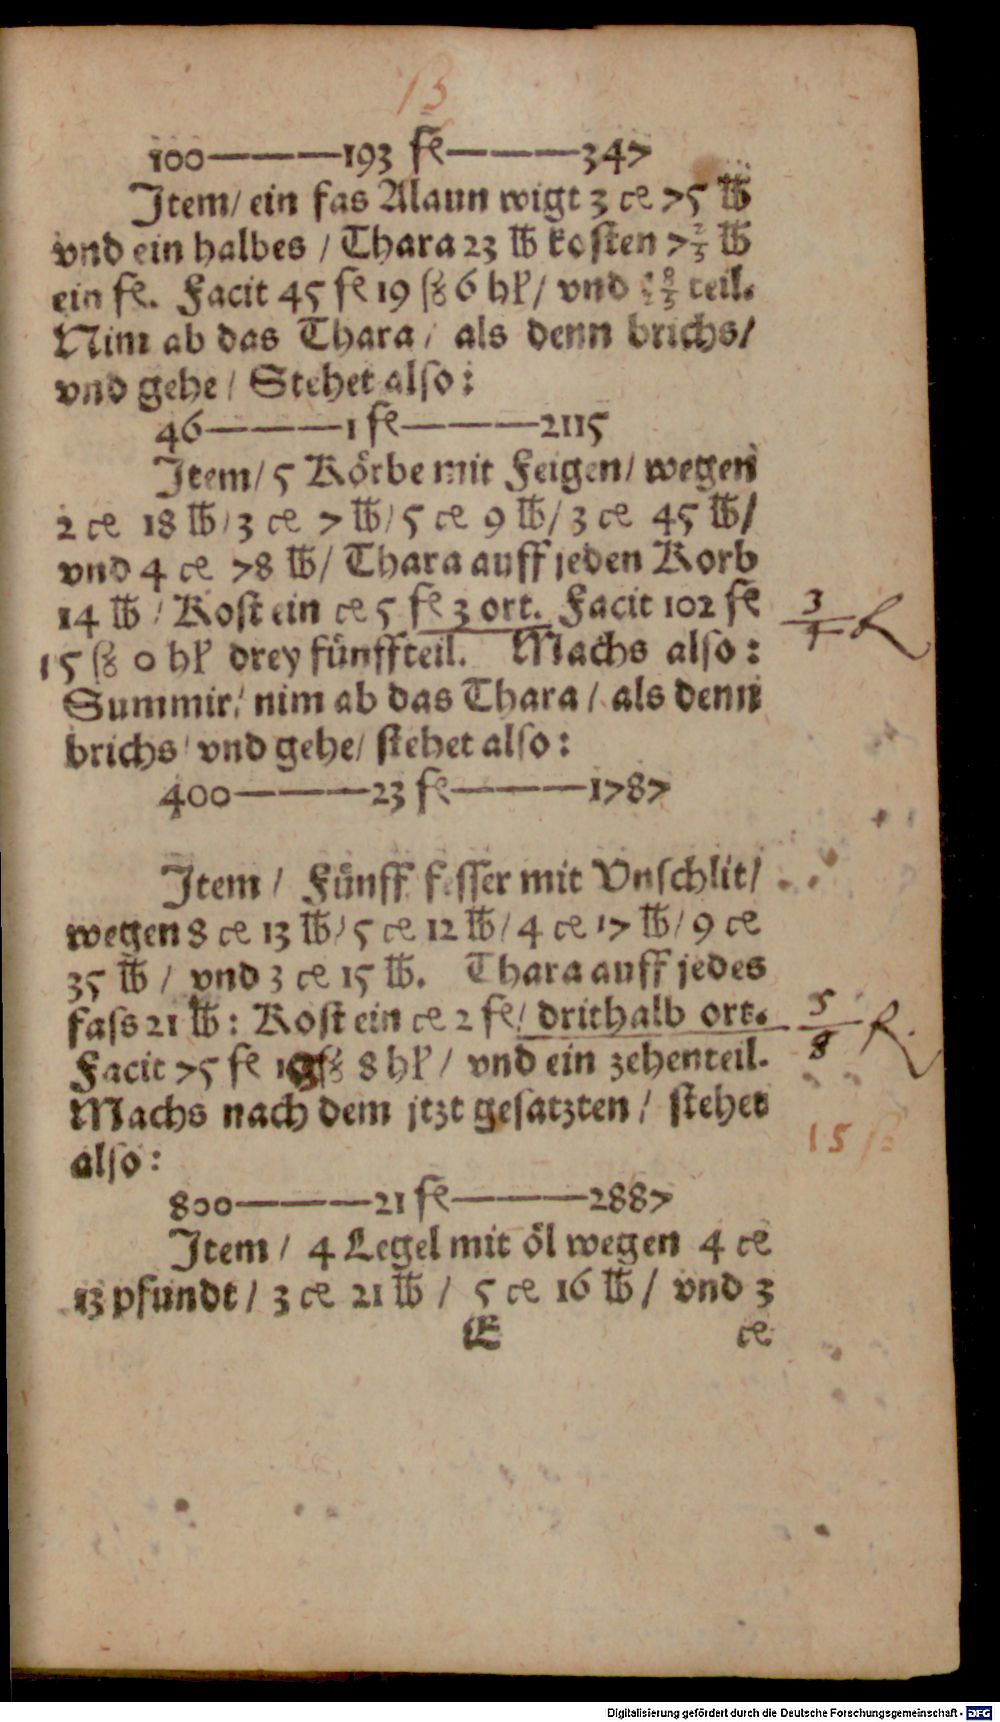 13
100———193 fl———347
Item/ ein fas Alaun wigt 3 ce 75 lb
vnd ein halbes / Thara 23 lb kosten 7 2/3 lb
ein fl. Facit 45 fl 19 ß 6 hl/ vnd teil.
Nim ab das Thara / als denn brichs/
vnd gehe / Stehet also:
46———1 fl———2115
Item/ 5 Körbe mit Feigen/ wegen
2 ce 18 lb/ 3 ce 7 lb/ 5 ce 9 lb/ 3 ce 45 lb/
vnd 4 ce 78 lb/ Thara auff jeden Korb
14 lb / Kost ein ce 5 fl 3 ort. Facit 102 fl
3/4 R
15 ß 0 hl drey fünffteil. Machs also:
Summir/ nim ab das Thara / als denn
brichs/ vnd gehe/ stehet also:
400———23 fl———1787
Item / Fünff fesser mit Vnschlit/
wegen 8 ce 13 lb/ 5 ce 12 lb/ 4 ce 17 lb/ 9 ce
35 lb / vnd 3 ce 15 lb. Thara auff jedes
fass 21 lb: Kost ein ce 2 fl/ drithalb ort.
5/8 R.
Facit 75 fl ß 8 hl/ vnd ein zehenteil.
Machs nach dem jtzt gesatzten / stehet
15 ß
also:
800———21 fl———2887
Item / 4 Legel mit öl wegen 4 ce
13 pfundt / 3 ce 21 lb / 5 ce 16 lb / vnd 3
E ce
Digitalisierung gefördert durch die Deutsche Forschungsgemeinschaft - DFG